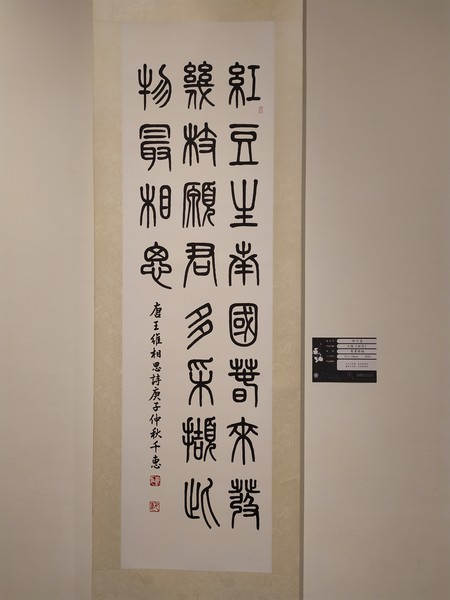 紅豆生南國春來發
幾枝願君多采擷此
物最相思
唐王維相思詩庚子仲秋千惠